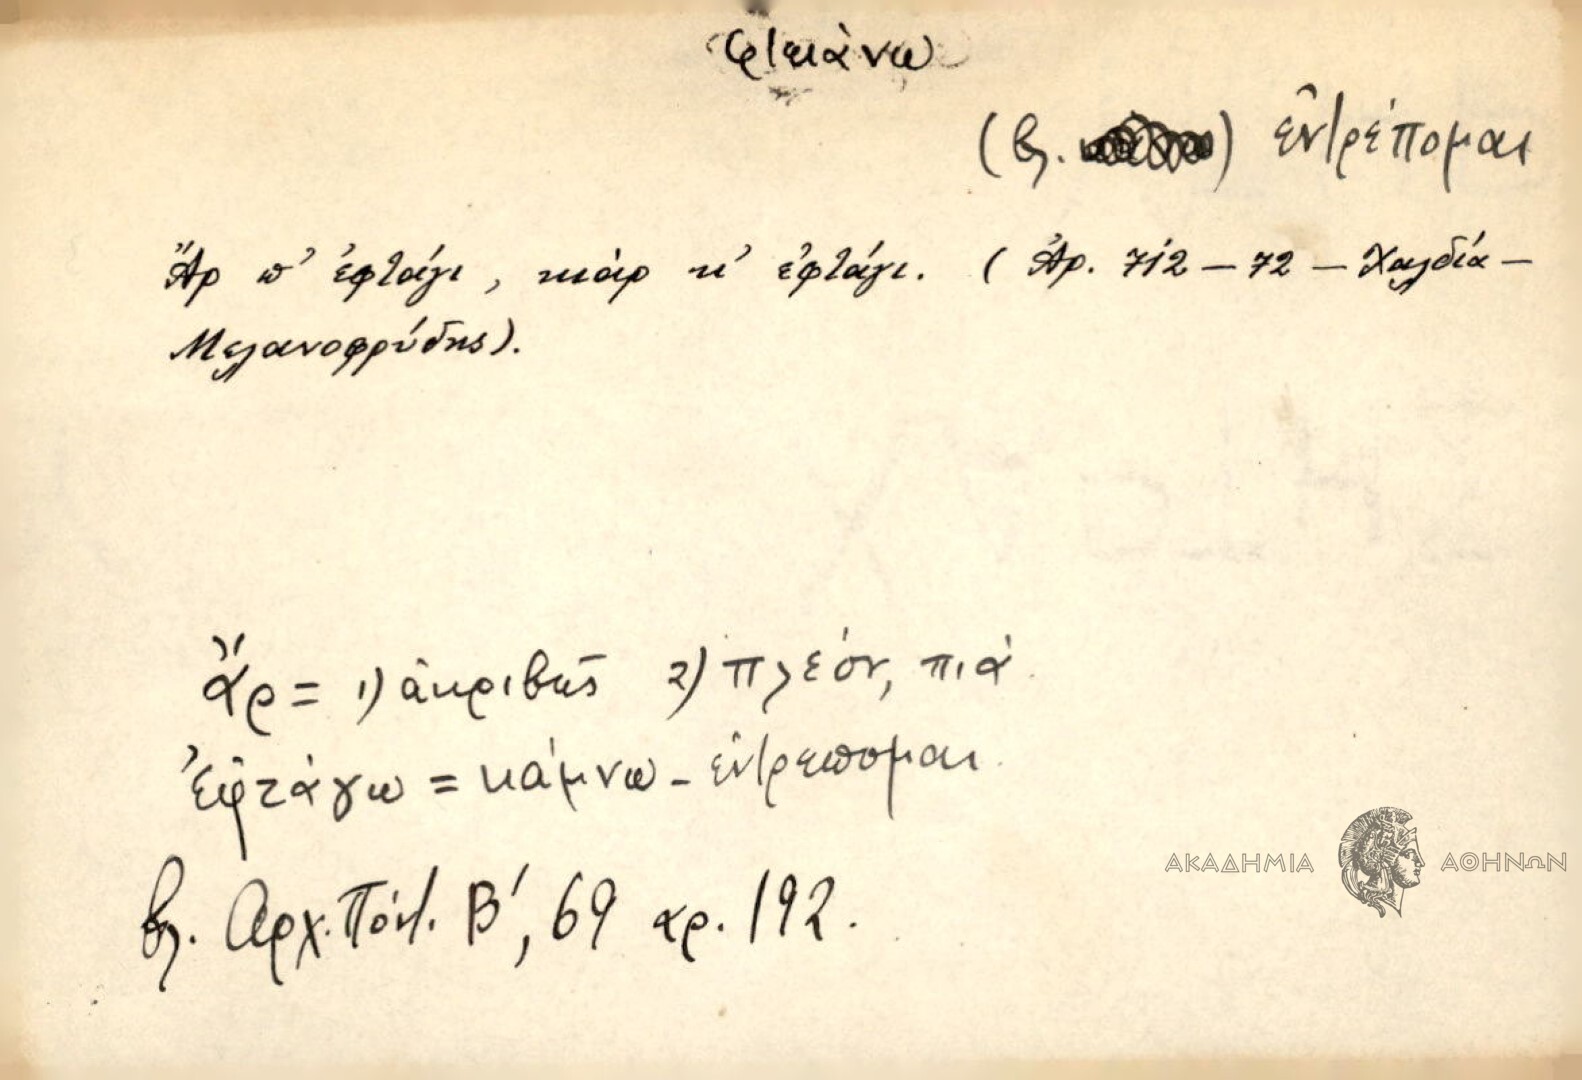 φτειάνω
(βλ. ) ἐντρέπομαι
Ἄρ π' ἐφτάγι, κιὰρ κ' ἐφτάγι. (Ἀρ. 712 – 72 – Χαλδία –
Μελανοφρύδης).
ἄρ = 1) ἀκριβῶς 2) πλέον, πιά
ἐφτάγω = κάμνω – ἐντρέπομαι
βλ. Αρχ. Πόντ. Β', 69 αρ. 192.
ΑΚΑΔΗΜΙΑ ΑΘΗΝΩΝ